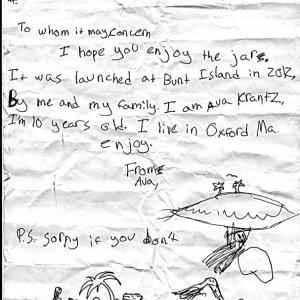 To whom it may concern
I hope you enjoy the jar.
It was launched at Bunt Island in 2012,
By me and my family. I am Ava Krantz,
I'm 10 years old. I live in Oxford Ma.
enjoy.
From
Ava,
P.S. sorry if you don't